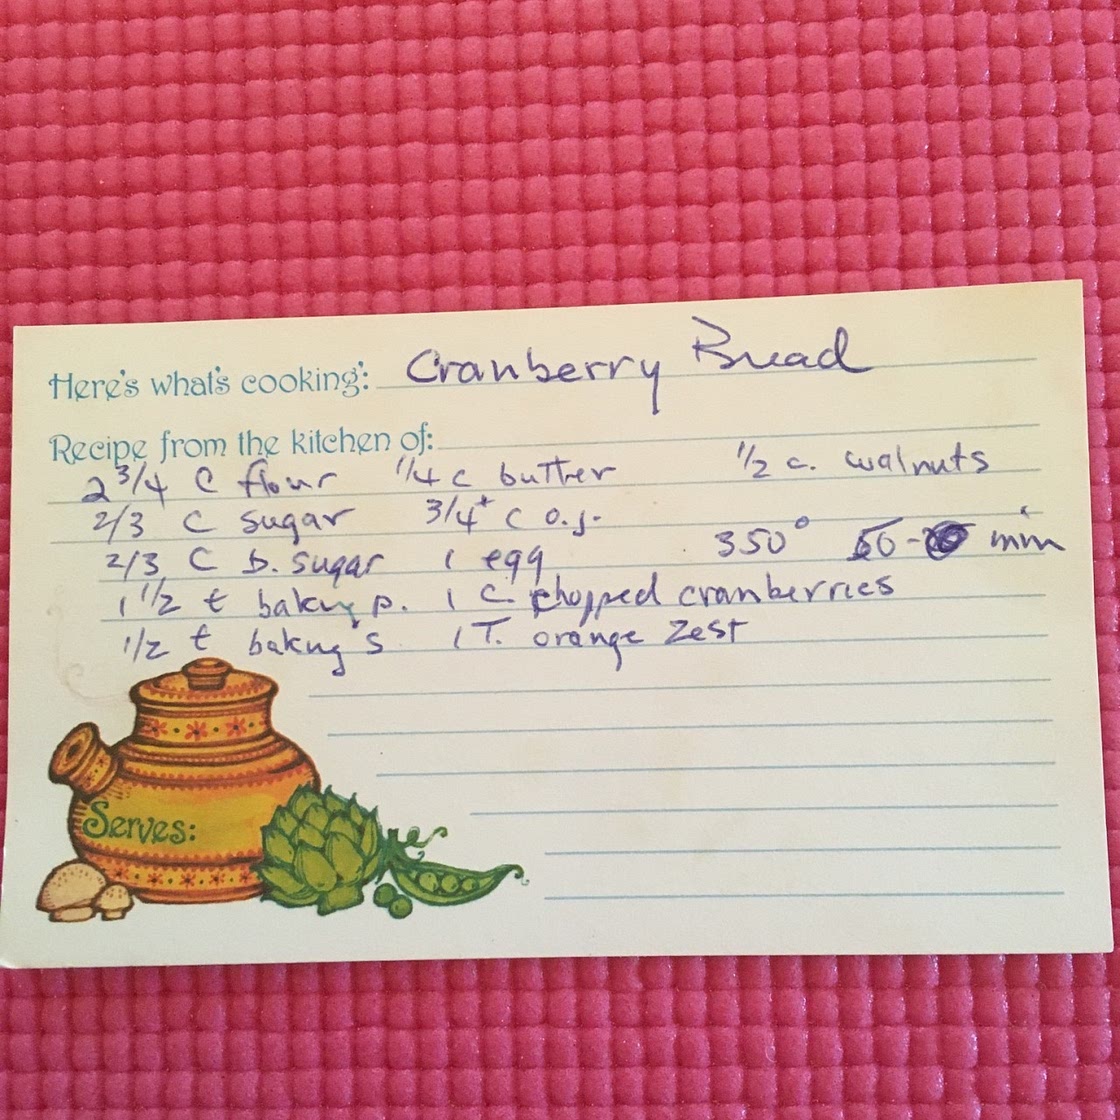 Here's what's cooking: Cranberry Bread
Recipe from the kitchen of:
2 3/4 C flour 1/4 c butter 1/2 c. walnuts
2/3 C sugar 3/4+ c o.j.
2/3 C b. sugar 1 egg 350° min
1 1/2 t baking p. 1 C. chopped cranberries
1/2 t baking s 1 T. orange zest
Serves: